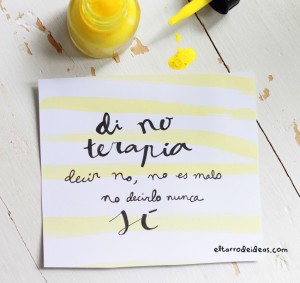 di no
terapia
decir no, no es malo
no decirlo nunca
SÍ
eltarrodeideas.com